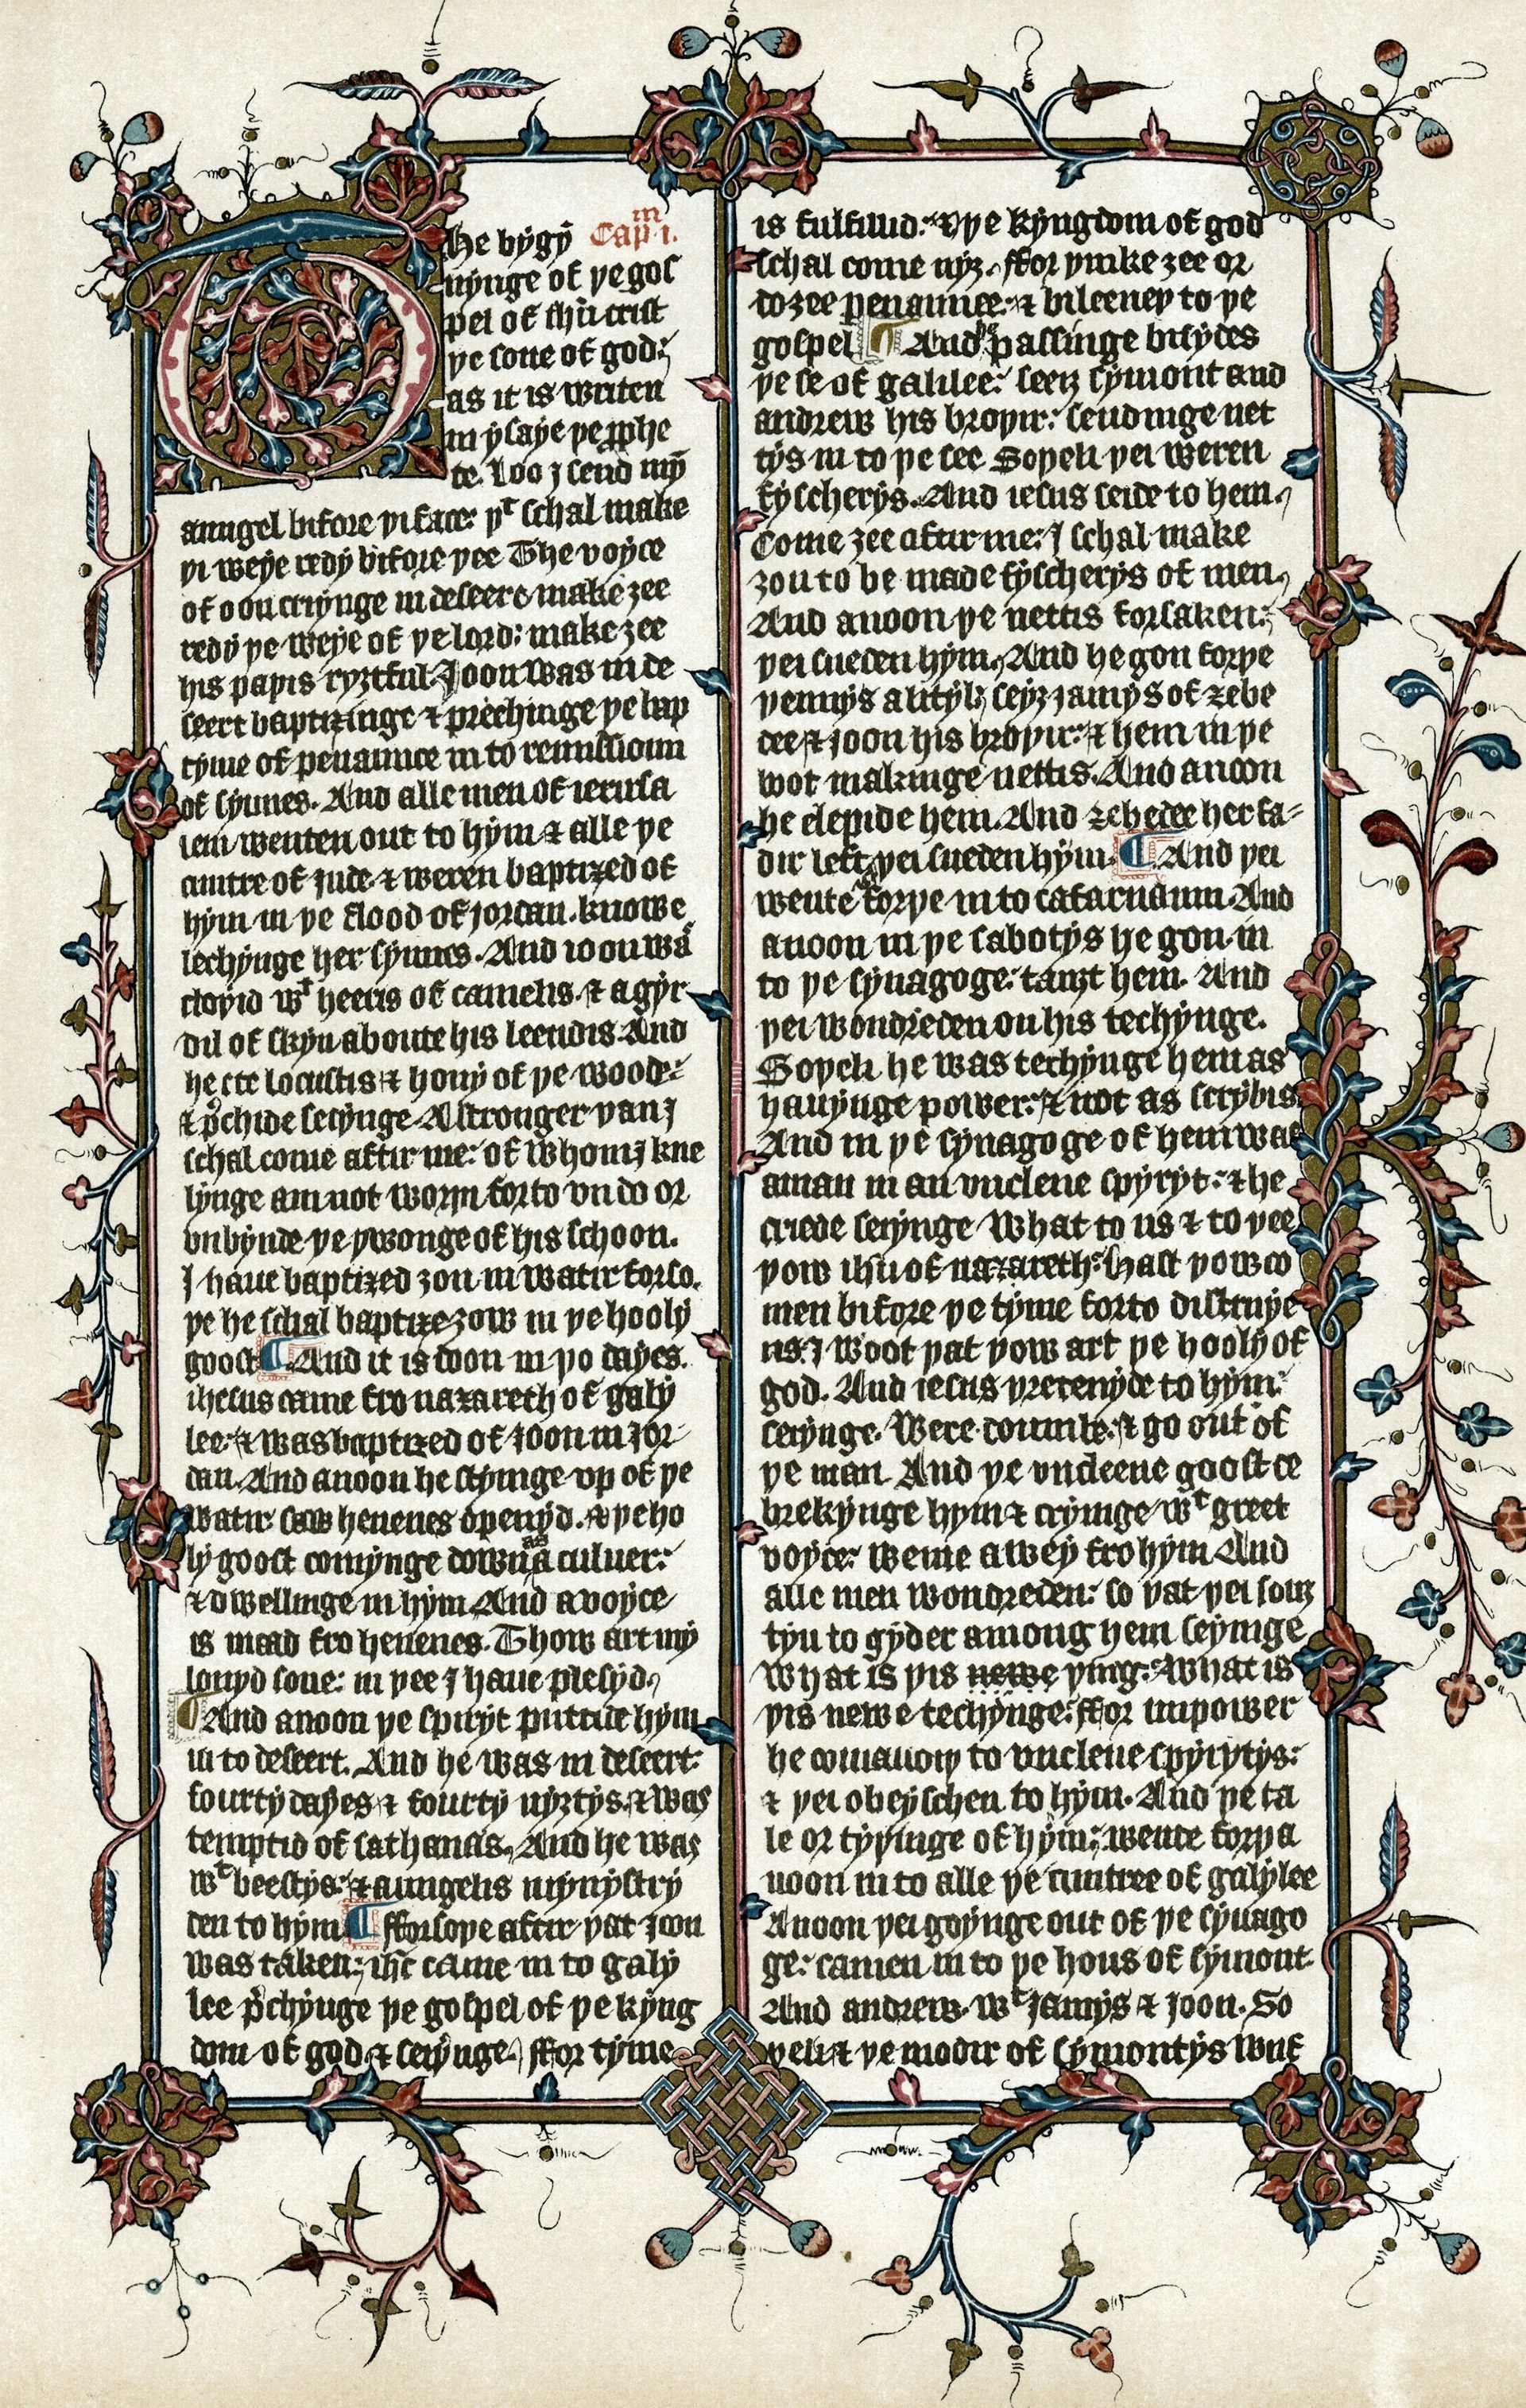 The bygȳ Capm i.
nynge of ye gos
pel of ihū crist
ye sone of god:
as it is writen
in ysaye ye pphe
te. Loo I send my
aungel bifore yi face: yt schal make
yi weye redy bifore yee The voyce
of oon criynge in deseert make ȝee
redy ye weye of ye lord: make ȝee
his papis ryȝtful. Joon was in de
seert baptizinge & prechinge ye bap
tyme of penaunce in to remissioun
of synnes. And alle men of ierusa
lem wenten out to hym & alle ye
cuntre of Jude. & weren baptized of
hym in ye flood of Jordan. knowe
lechynge her synnes. And ioon was
cloyid wt heeris of camelis. & a gyr
dil of skyn aboute his leendis. And
he eet locustis & hony of ye woode:
& pchide seiynge. A stronger yan I
schal come aftir me: of whom I kne
lynge am not woryi forto vndo or
vnbynde ye ywonge of his schoon.
I haue baptized ȝou in watir forso.
ye he schal baptize ȝow in ye hooly
goost ¶ And it is doon in yo dayes.
ihesus came fro nazareth of galy
lee & was baptized of Joon in Jor
dan. And anoon he styinge vp of ye
watir saw heuenes openyd. & ye ho
ly goost comynge down as a culuer:
& dwellinge in hym And a voyce
is maad fro heuenes. Thow art my
louyd sone: in yee I haue plesyd.
¶ And anoon ye spiryt puttide hym
in to deseert. And he was in deseert:
fourty dayes & fourty nyȝtys. & was
temptid of sathanas. And he was
wt beestys: & aungelis mynystry
den to hym ¶ fforsoye aftir yat Joon
was taken: ihc came in to galy
lee pchynge ye gospel of ye kyng
dom of god & seiynge. ffor tyme
is fulfillid: & ye kyngdom of god
schal come nyȝ. ffor yinke ȝee or
do ȝee penaunce: & bileeuey to ye
gospel ¶ And he passinge bisydes
ye se of galilee: seeȝ symont and
andrew his broyir: sendinge net
tys in to ye see Soyeli yei weren
fyscherys. And iesus seide to hem.
Come ȝee aftir me: I schal make
ȝou to be made fyscherys of men.
And anoon ye nettis forsaken:
yei sueden hym. And he gon forye
yennys a lityl: seyȝ Jamys of zebe
dee & Joon his broyir: & hem in ye
boot makinge nettis. And anoon
he clepide hem. And zebedee her fa-
dir left, yei sueden hym. ¶ And yei
wente forye in to cafarnaum. And
anoon in ye sabotys he gon in
to ye synagoge: tauȝt hem. And
yei wondreden on his techynge.
Soyeli he was techynge hem as
hauynge power: & not as scrybis
And in ye synagoge of hem was
a man in an vnclene spyryt: & he
criede seiynge What to us & to yee
yow ihū of nazareth: Hast yow co
men bifore ye tyme forto distruye
us. I woot yat yow art ye hooly of
god. And iesus yretenyde to hym:
seiynge. Were doumbe: & go out of
ye man. And ye vncleene goost de
brekynge hym & cryinge wt greet
voyce: wente awey fro hym And
alle men wondreden: so yat yei souȝ
tyn to gyder among hem seyinge
What is yis newe ying: What is
yis newe techynge: ffor in power
he comaundiy to vnclene spyrytys:
& yei obeyschen to hym. And ye ta
le or tyyinge of hym: wente forya
noon in to alle ye cuntree of galylee
Anoon yei goynge out of ye synago
ge: camen in to ye hous of symont
And andrew. wt Jamys & Joon. So
yeli & ye modir of symontys wiif